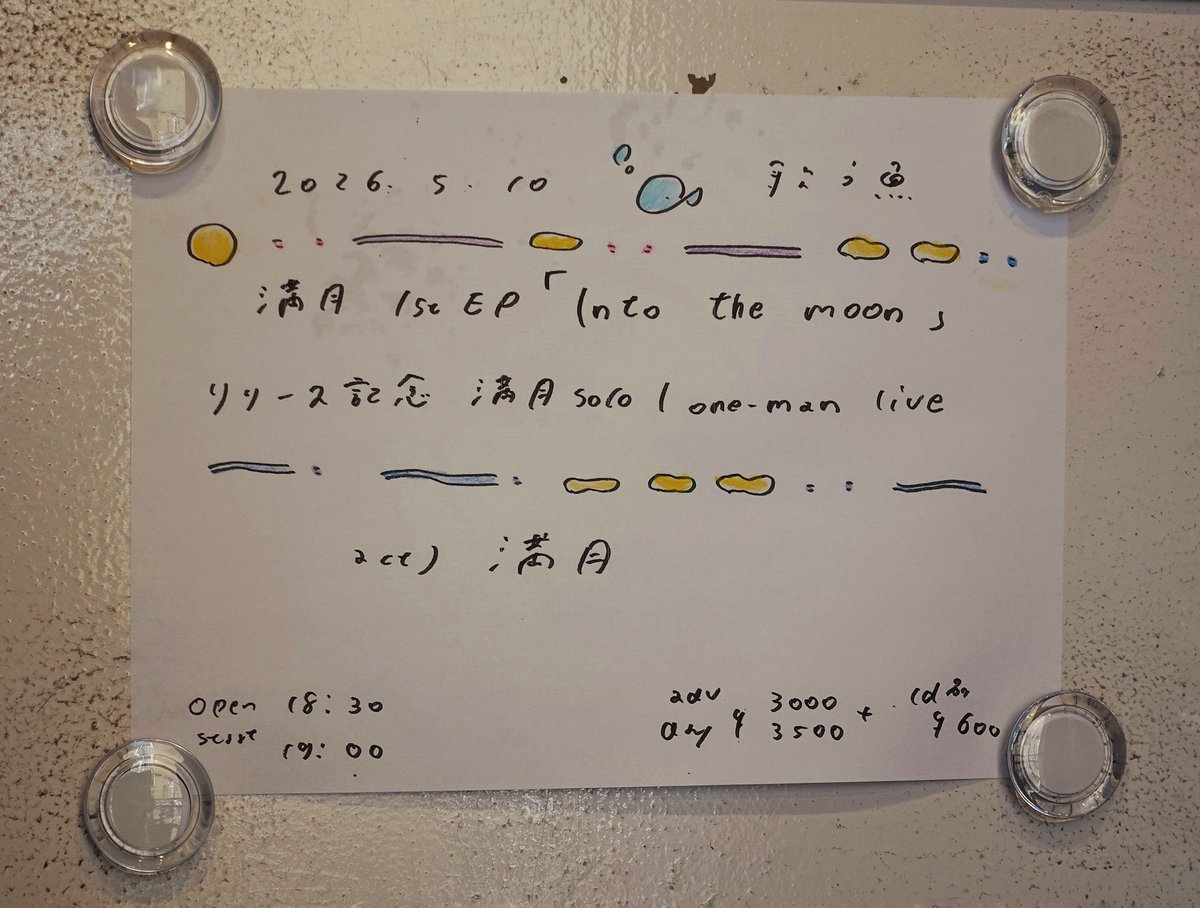 2026. 5. 10
満月 1st EP「Into the moon」
リリース記念 満月 solo one-man live
act) 満月
open 18:30
start 19:00
adv ¥ 3000 + 1d
day ¥ 3500 ¥600